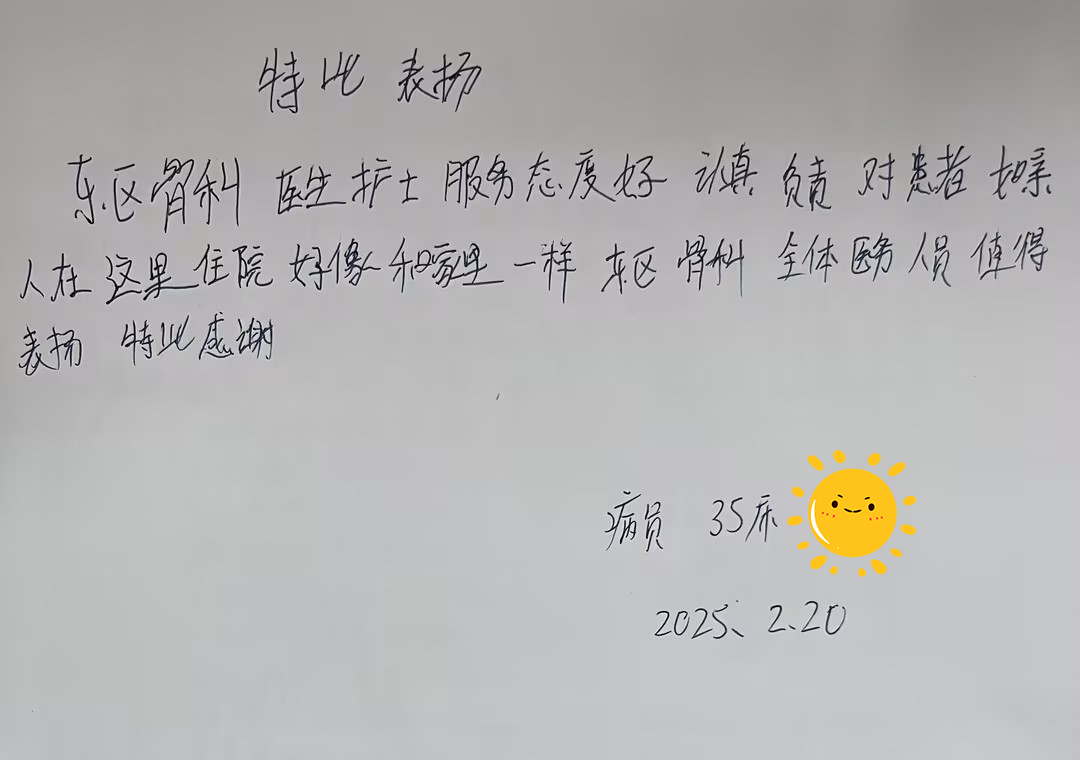 特此 表扬
东区骨科 医生护士 服务态度好 认真 负责 对患者 如亲
人在 这里住院 好像和家里一样 东区 骨科 全体医务人员 值得
表扬 特此感谢
病员 35床
2025、2.20